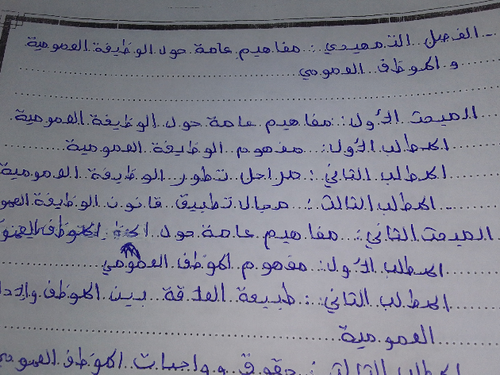 - الفصل التمهيدي : مفاهيم عامة حول الوظيفة العمومية
و الموظف العمومي
المبحث الأول : مفاهيم عامة حول الوظيفة العمومية
المطلب الأول : مفهوم الوظيفة العمومية
المطلب الثاني : مراحل تطور الوظيفة العمومية
- المطلب الثالث : مجال تطبيق قانون الوظيفة
المبحث الثاني : مفاهيم عامة حول الموظف
المطلب الأول : مفهوم الموظف العمومي
المطلب الثاني : طبيعة العلاقة بين الموظف
العمومية
المطلب الثالث : حقوق و واجبات الموظف